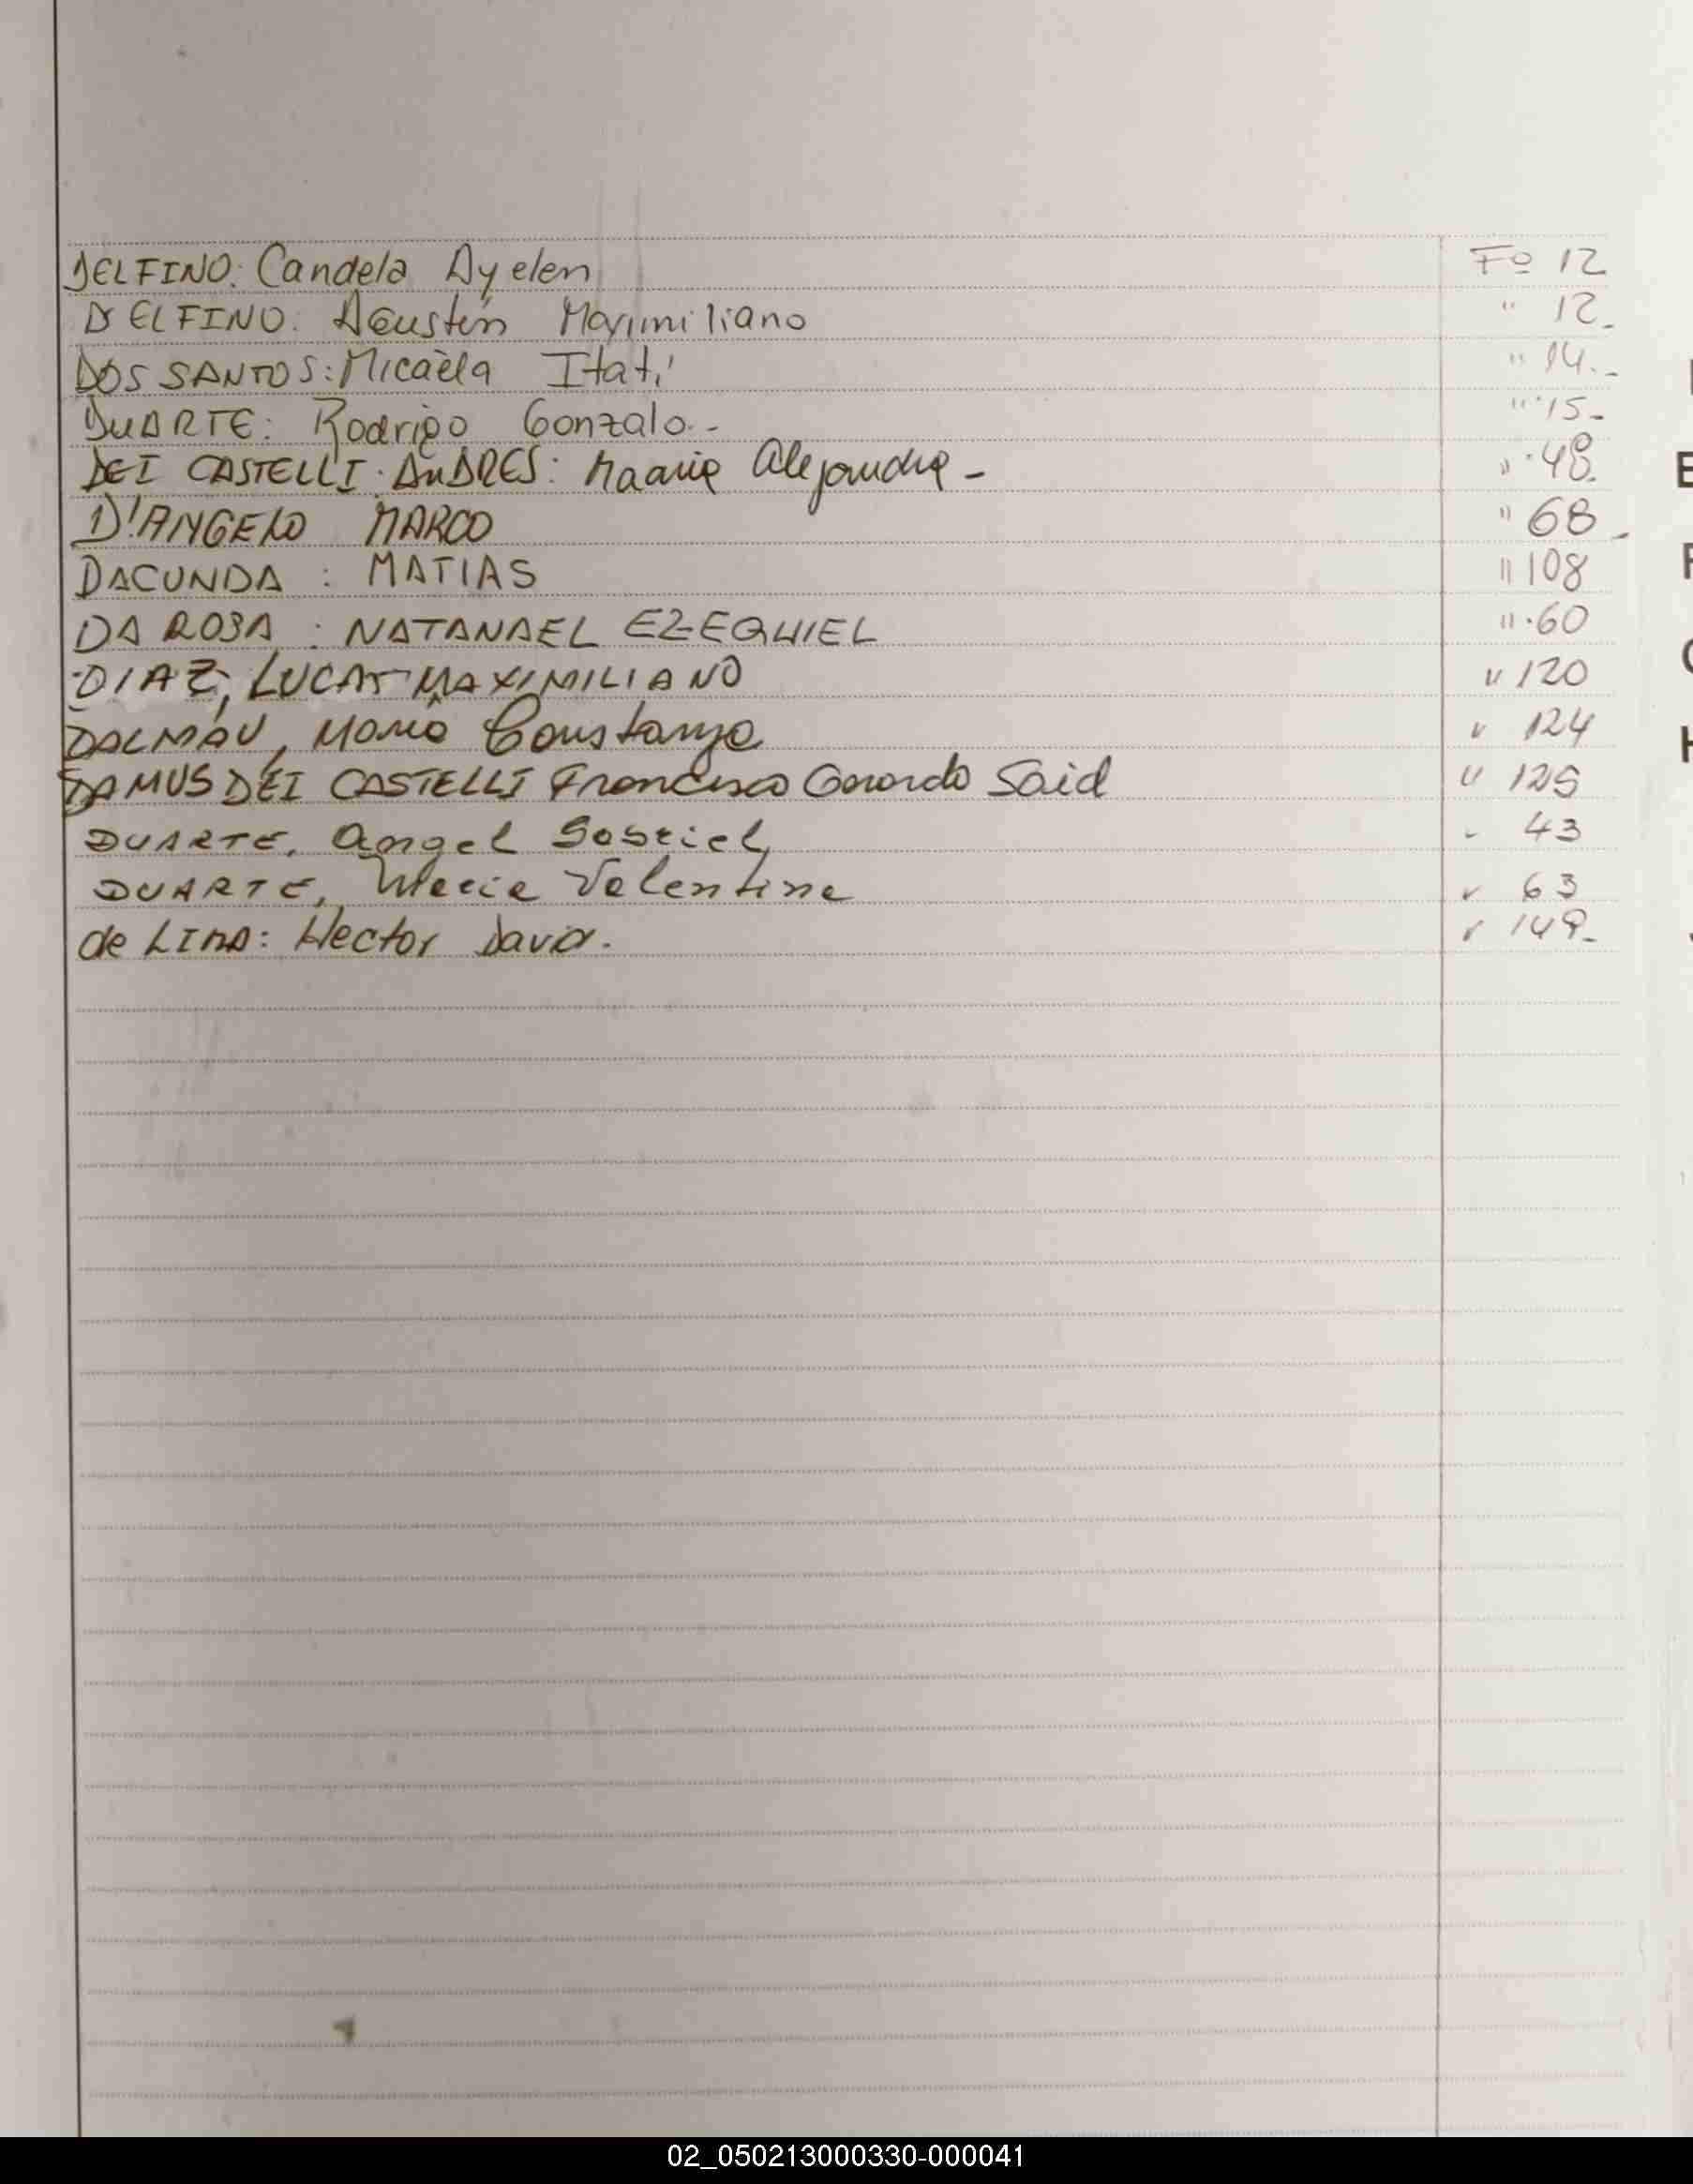 DELFINO: Candela Ayelen Fº 12
DELFINO: Agustín Maximiliano " 12-
DOS SANTOS: Micaela Itatí " 14.-
DUARTE: Rodrigo Gonzalo.- " 15-
DEI CASTELLI ANDRES: Maaria Alejandra - " 48.
D'ANGELO MARCO " 68-
DACUNDA : MATIAS " 108
DA ROSA : NATANAEL EZEQUIEL " 60
DIAZ, LUCAS MAXIMILIANO " 120
DALMAU, María Constanza " 124
DAMUS DEI CASTELLI Francisco Gerardo Said " 125
DUARTE, Angel Gabriel - 43
DUARTE, Maria Valentina " 63
de LIMA: Hector David. " 149-
E
F
G
H
02_050213000330-000041